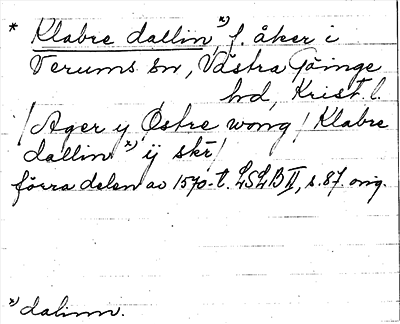 * Klabre dallin x), f. åker i
Verums sn, Västra Göinge
hd, Krist. l.
/Ager y Østre wong/ Klabre
dallin x) ÿ skr/
förra delen av 1570-t. LSLB II, s. 87. orig.
x) dalinn.